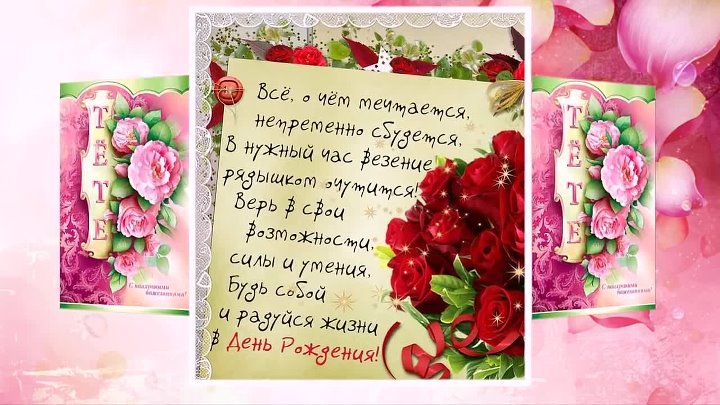 Всё, о чём мечтается,
непременно сбудется,
В нужный час везение
рядышком очутится!
Верь в свои
возможности,
силы и умения,
Будь собой
и радуйся жизни
в День Рождения!
ТЁТЕ
С наилучшими
пожеланиями!
ТЁТЕ
С наилучшими
пожеланиями!